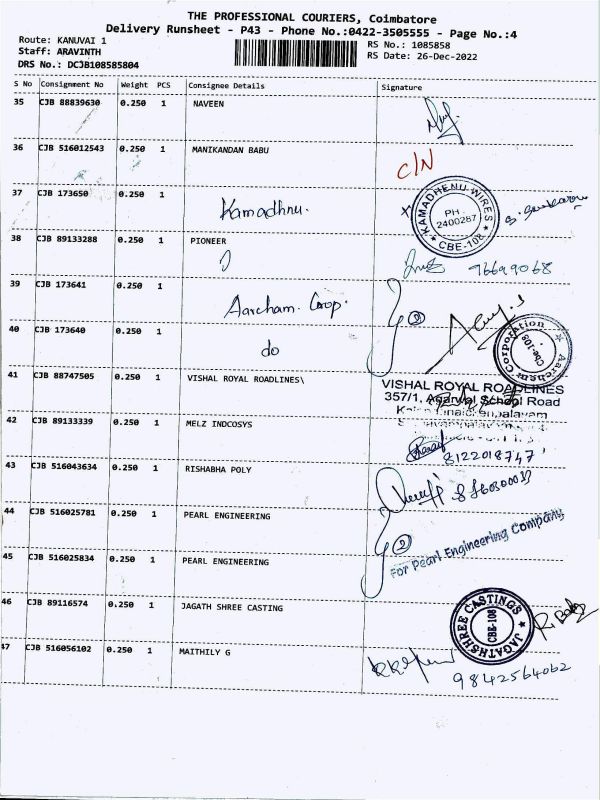 THE PROFESSIONAL COURIERS, Coimbatore
Delivery Runsheet - P43 - Phone No.:0422-3505555 - Page No.:4
Route: KANUVAI 1
Staff: ARAVINTH
DRS No.: DCJB108585804
RS No.: 1085858
RS Date: 26-Dec-2022
S No Consignment No Weight PCS Consignee Details Signature
35 CJB 88839630 0.250 1 NAVEEN
36 CJB 516012543 0.250 1 MANIKANDAN BABU
C/N
37 CJB 173650 0.250 1
Kamadhnu.
KAMADHENU WIRES
PH.
2400287
CBE-108
38 CJB 89133288 0.250 1 PIONEER
39 CJB 173641 0.250 1
Aarcham. Corp.
2
40 CJB 173640 0.250 1
do
Aarcham Corporation
Cbe-108
41 CJB 88747505 0.250 1 VISHAL ROYAL ROADLINES\
VISHAL ROYAL ROADLINES
357/1, Agarwal School Road
42 CJB 89133339 0.250 1 MELZ INDCOSYS
8122018747
43 CJB 516043634 0.250 1 RISHABHA POLY
44 CJB 516025781 0.250 1 PEARL ENGINEERING
2
For Pearl Engineering Company
45 CJB 516025834 0.250 1 PEARL ENGINEERING
46 CJB 89116574 0.250 1 JAGATH SHREE CASTING
JAGATHSHREE CASTINGS
CBE-108
47 CJB 516056102 0.250 1 MAITHILY G
9842564062